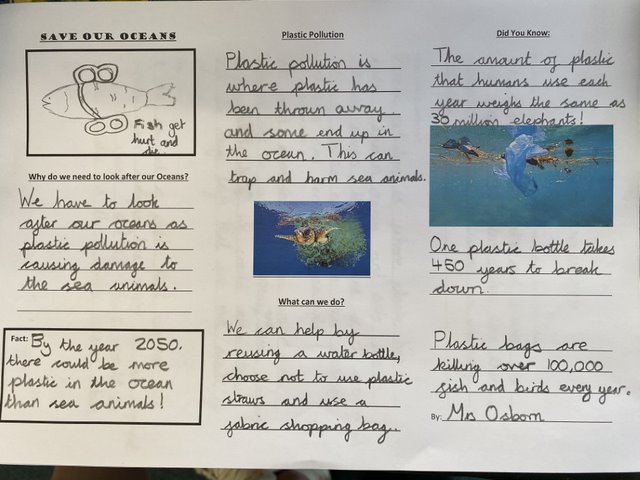 SAVE OUR OCEANS
Fish get
hurt and
die.
Why do we need to look after our Oceans?
We have to look
after our oceans as
plastic pollution is
causing damage to
the sea animals.
Fact: By the year 2050,
there could be more
plastic in the ocean
than sea animals!
Plastic Pollution
Plastic pollution is
where plastic has
been thrown away
and some end up in
the ocean. This can
trap and harm sea animals.
What can we do?
We can help by
reusing a water bottle,
choose not to use plastic
straws and use a
fabric shopping bag.
Did You Know:
The amount of plastic
that humans use each
year weighs the same as
30 million elephants!
One plastic bottle takes
450 years to break
down.
Plastic bags are
killing over 100,000
fish and birds every year.
By: Mrs Osborn